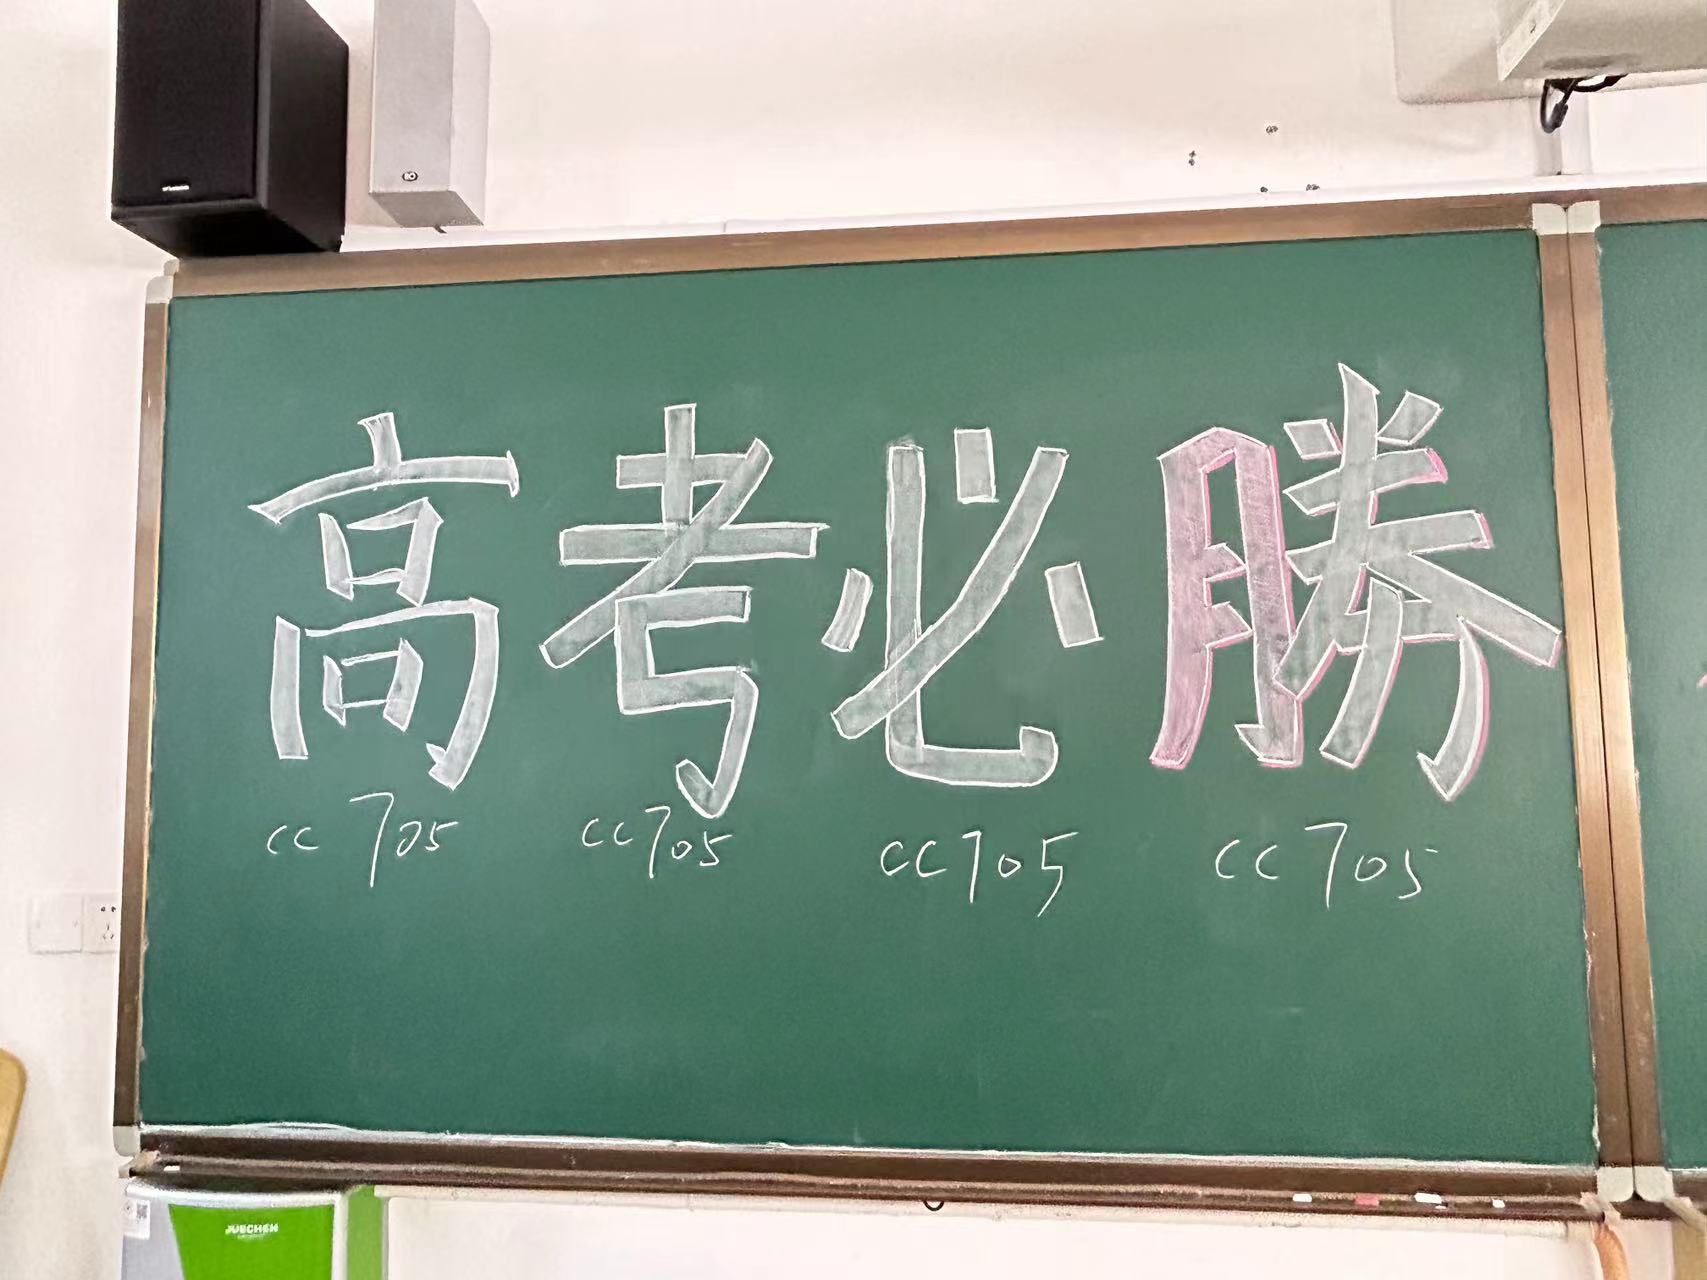 高考必勝
cc 705 cc705 cc705 cc 705
JUECHEN